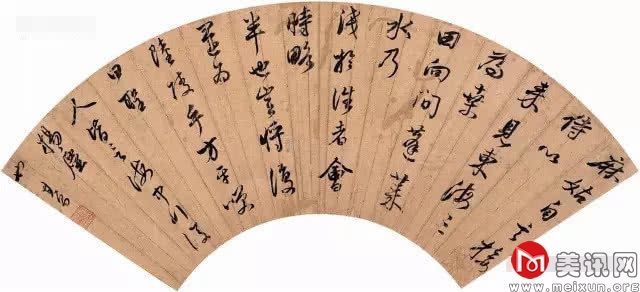 麻姑自言接
待以
来見東海三
為桒
田向問蓬萊
水乃
淺於往者會
時略
半也豈將復
還為
陸陵乎方平笑
曰聖
人皆言海中行復
揚塵
美讯网
www.meixun.org